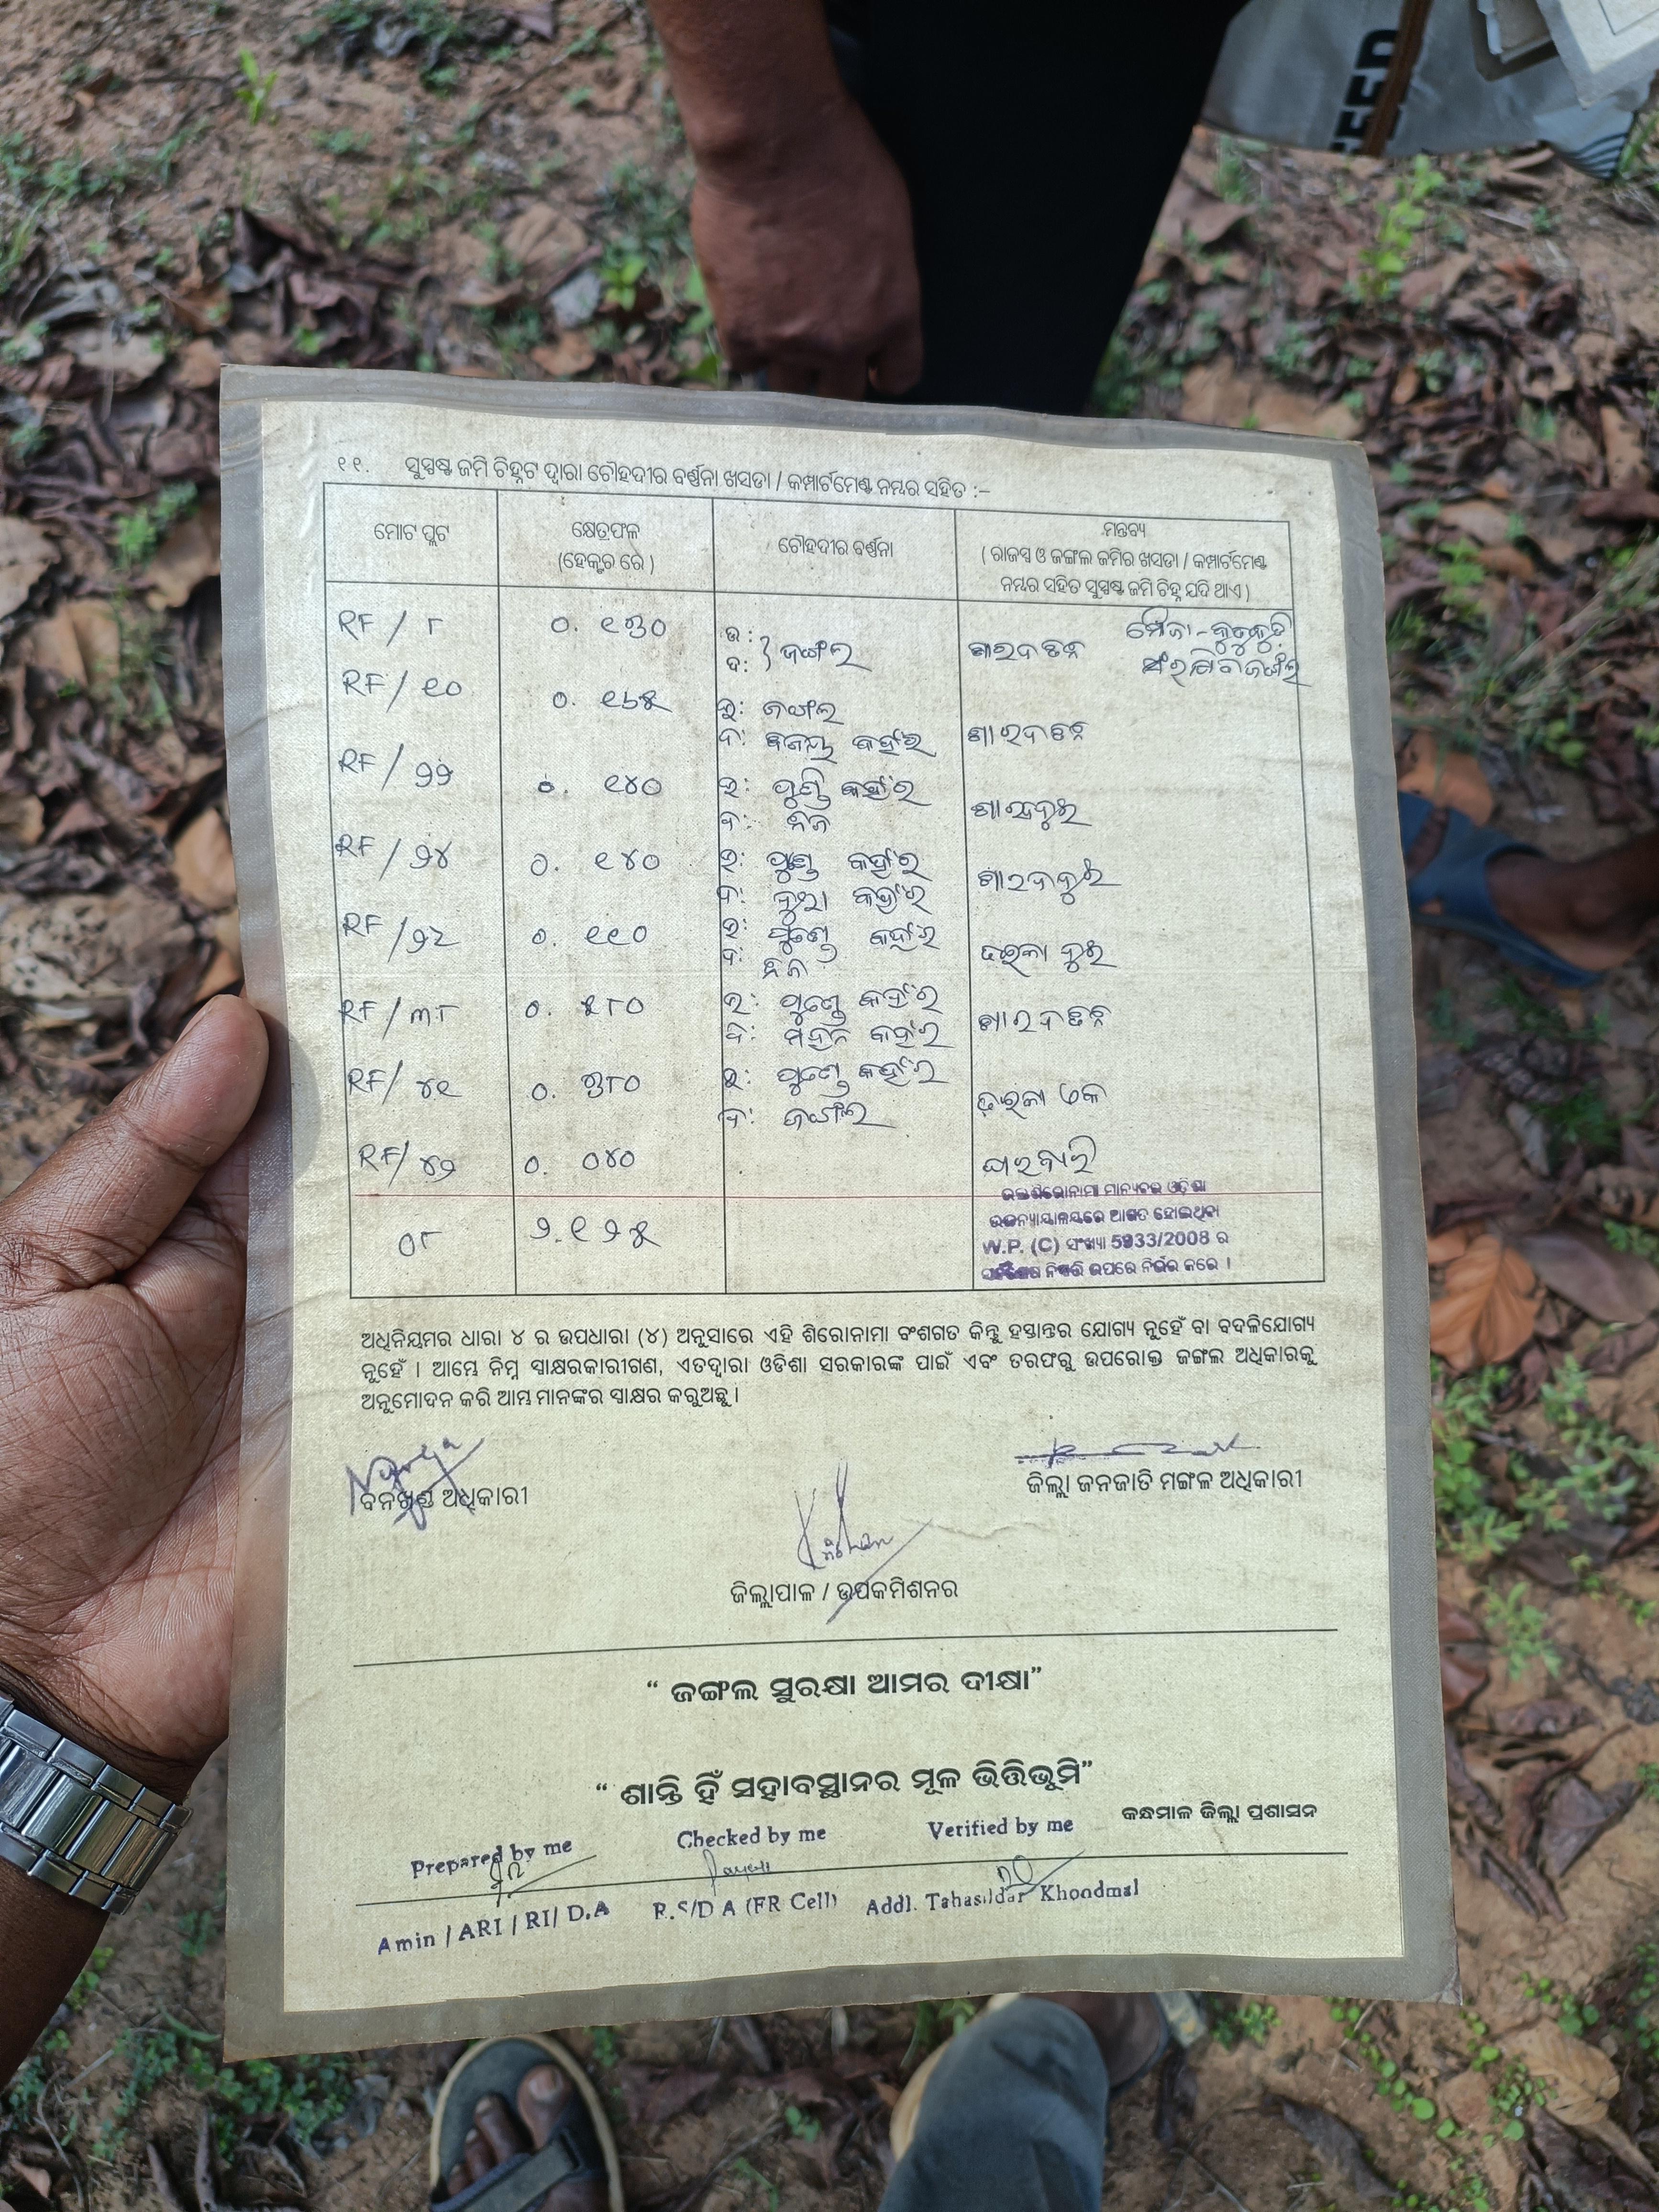 ୧୧. ସୁସ୍ପଷ୍ଟ ଜମି ଚିହ୍ନଟ ଦ୍ୱାରା ଚୌହଦୀର ବର୍ଣ୍ଣନା ଖସଡା / କମ୍ପାର୍ଟମେଣ୍ଟ ନମ୍ବର ସହିତ :–
ମୋଟ ପ୍ଲଟ
କ୍ଷେତ୍ରଫଳ
(ହେକ୍ଟର ରେ)
ଚୌହଦୀର ବର୍ଣ୍ଣନା
ମନ୍ତବ୍ୟ
( ରାଜସ୍ୱ ଓ ଜଙ୍ଗଲ ଜମିର ଖସଡା / କମ୍ପାର୍ଟମେଣ୍ଟ
ନମ୍ବର ସହିତ ସୁସ୍ପଷ୍ଟ ଜମି ଚିହ୍ନ ଯଦି ଥାଏ )
RF / ୮ ୦. ୧୩୦ ଉ :
ଦ: } ଜଙ୍ଗଲ ଶାରଦ ତିନ ମୌଜା-
ସଂରକ୍ଷିତ ଜଙ୍ଗଲ
RF / ୧୦ ୦. ୧୬୫ ଉ: ଜଙ୍ଗଲ ଶାରଦ ତିନ
ଦ: କହଁର
RF / ୨୨ ୦. ୧୪୦ ଉ: କହଁର ଶାରଦ ଦୁଇ
ଦ: ନିଜ
RF / ୨୪ ୦. ୧୪୦ ଉ: କହଁର ଶାରଦ ଦୁଇ
ଦ: କହଁର
RF / ୨୯ ୦. ୧୧୦ ଉ: କହଁର ଦୁଇ
ଦ: ନିଜ
RF / ୩୮ ୦. ୫୮୦ ଉ: କହଁର ଶାରଦ ତିନ
ଦ: କହଁର
RF / ୪୧ ୦. ୩୮୦ ଉ: କହଁର ଏକ
ଦ: ଜଙ୍ଗଲ
RF / ୪୨ ୦. ୦୪୦ ଘରବାରି
୦୮ ୨.୧୨୫
ଉକ୍ତ ଶିରୋନାମା ମାନ୍ୟବର ଓଡ଼ିଶା
ଉଚ୍ଚନ୍ୟାୟାଳୟରେ ଆଗତ ହୋଇଥିବା
W.P. (C) ସଂଖ୍ୟା 5933/2008 ର
ନିଷ୍ପତ୍ତି ଉପରେ ନିର୍ଭର କରେ ।
ଅଧିନିୟମର ଧାରା ୪ ର ଉପଧାରା (୪) ଅନୁସାରେ ଏହି ଶିରୋନାମା ବଂଶଗତ କିନ୍ତୁ ହସ୍ତାନ୍ତର ଯୋଗ୍ୟ ନୁହେଁ ବା ବଦଳିଯୋଗ୍ୟ
ନୁହେଁ । ଆମ୍ଭେ ନିମ୍ନ ସ୍ୱାକ୍ଷରକାରୀଗଣ, ଏତଦ୍ୱାରା ଓଡିଶା ସରକାରଙ୍କ ପାଇଁ ଏବଂ ତରଫରୁ ଉପରୋକ୍ତ ଜଙ୍ଗଲ ଅଧିକାରକୁ
ଅନୁମୋଦନ କରି ଆମ୍ଭ ମାନଙ୍କର ସ୍ୱାକ୍ଷର କରୁଅଛୁ ।
ବନଖଣ୍ଡ ଅଧିକାରୀ
ଜିଲ୍ଲା ଜନଜାତି ମଙ୍ଗଳ ଅଧିକାରୀ
ଜିଲ୍ଲାପାଳ / ଉପକମିଶନର
“ ଜଙ୍ଗଲ ସୁରକ୍ଷା ଆମର ଦୀକ୍ଷା”
“ ଶାନ୍ତି ହିଁ ସହାବସ୍ଥାନର ମୂଳ ଭିତ୍ତିଭୂମି”
କନ୍ଧମାଳ ଜିଲ୍ଲା ପ୍ରଶାସନ
Prepared by me Checked by me Verified by me
Amin / ARI / RI/ D.A R.S/D A (FR Cell) Addl. Tahasildar Khondmal